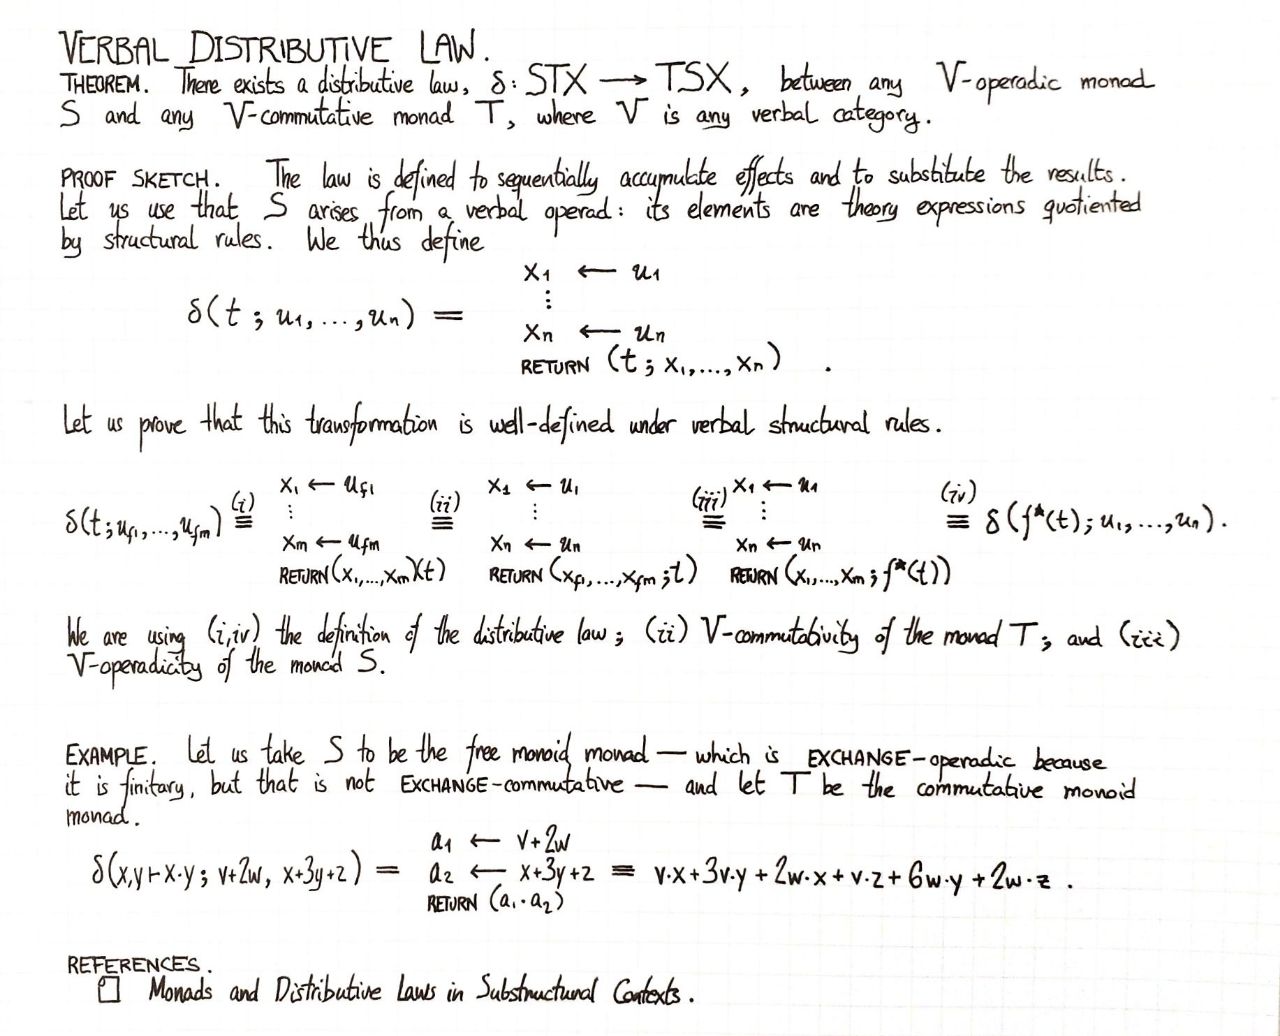 VERBAL DISTRIBUTIVE LAW.
THEOREM. There exists a distributive law, δ: STX → TSX, between any V-operadic monad
S and any V-commutative monad T, where V is any verbal category.
PROOF SKETCH. The law is defined to sequentially accumulate effects and to substitute the results.
Let us use that S arises from a verbal operad: its elements are theory expressions quotiented
by structural rules. We thus define
x₁ ← u₁
⋮
δ(t ; u₁, ..., uₙ) =
xₙ ← uₙ
RETURN (t ; x₁, ..., xₙ) .
Let us prove that this transformation is well-defined under verbal structural rules.
δ(t; u_f1, ..., u_fm) (i) ≡
x₁ ← u_f1
⋮
xₘ ← u_fm
RETURN (x₁, ..., xₘ)(t)
(ii) ≡
x₁ ← u₁
⋮
xₙ ← uₙ
RETURN (x_f1, ..., x_fm ; t)
(iii) ≡
x₁ ← u₁
⋮
xₙ ← uₙ
RETURN (x₁, ..., xₘ ; f*(t))
(iv) ≡ δ(f*(t); u₁, ..., uₙ).
We are using (i,iv) the definition of the distributive law; (ii) V-commutativity of the monad T; and (iii)
V-operadicity of the monad S.
EXAMPLE. Let us take S to be the free monoid monad — which is EXCHANGE-operadic because
it is finitary, but that is not EXCHANGE-commutative — and let T be the commutative monoid
monad.
a₁ ← v+2w
δ(x,y ⊢ x·y ; v+2w, x+3y+z) = a₂ ← x+3y+z ≡ v·x+3v·y+2w·x+v·z+6w·y+2w·z .
RETURN (a₁·a₂)
REFERENCES.
□ Monads and Distributive Laws in Substructural Contexts.